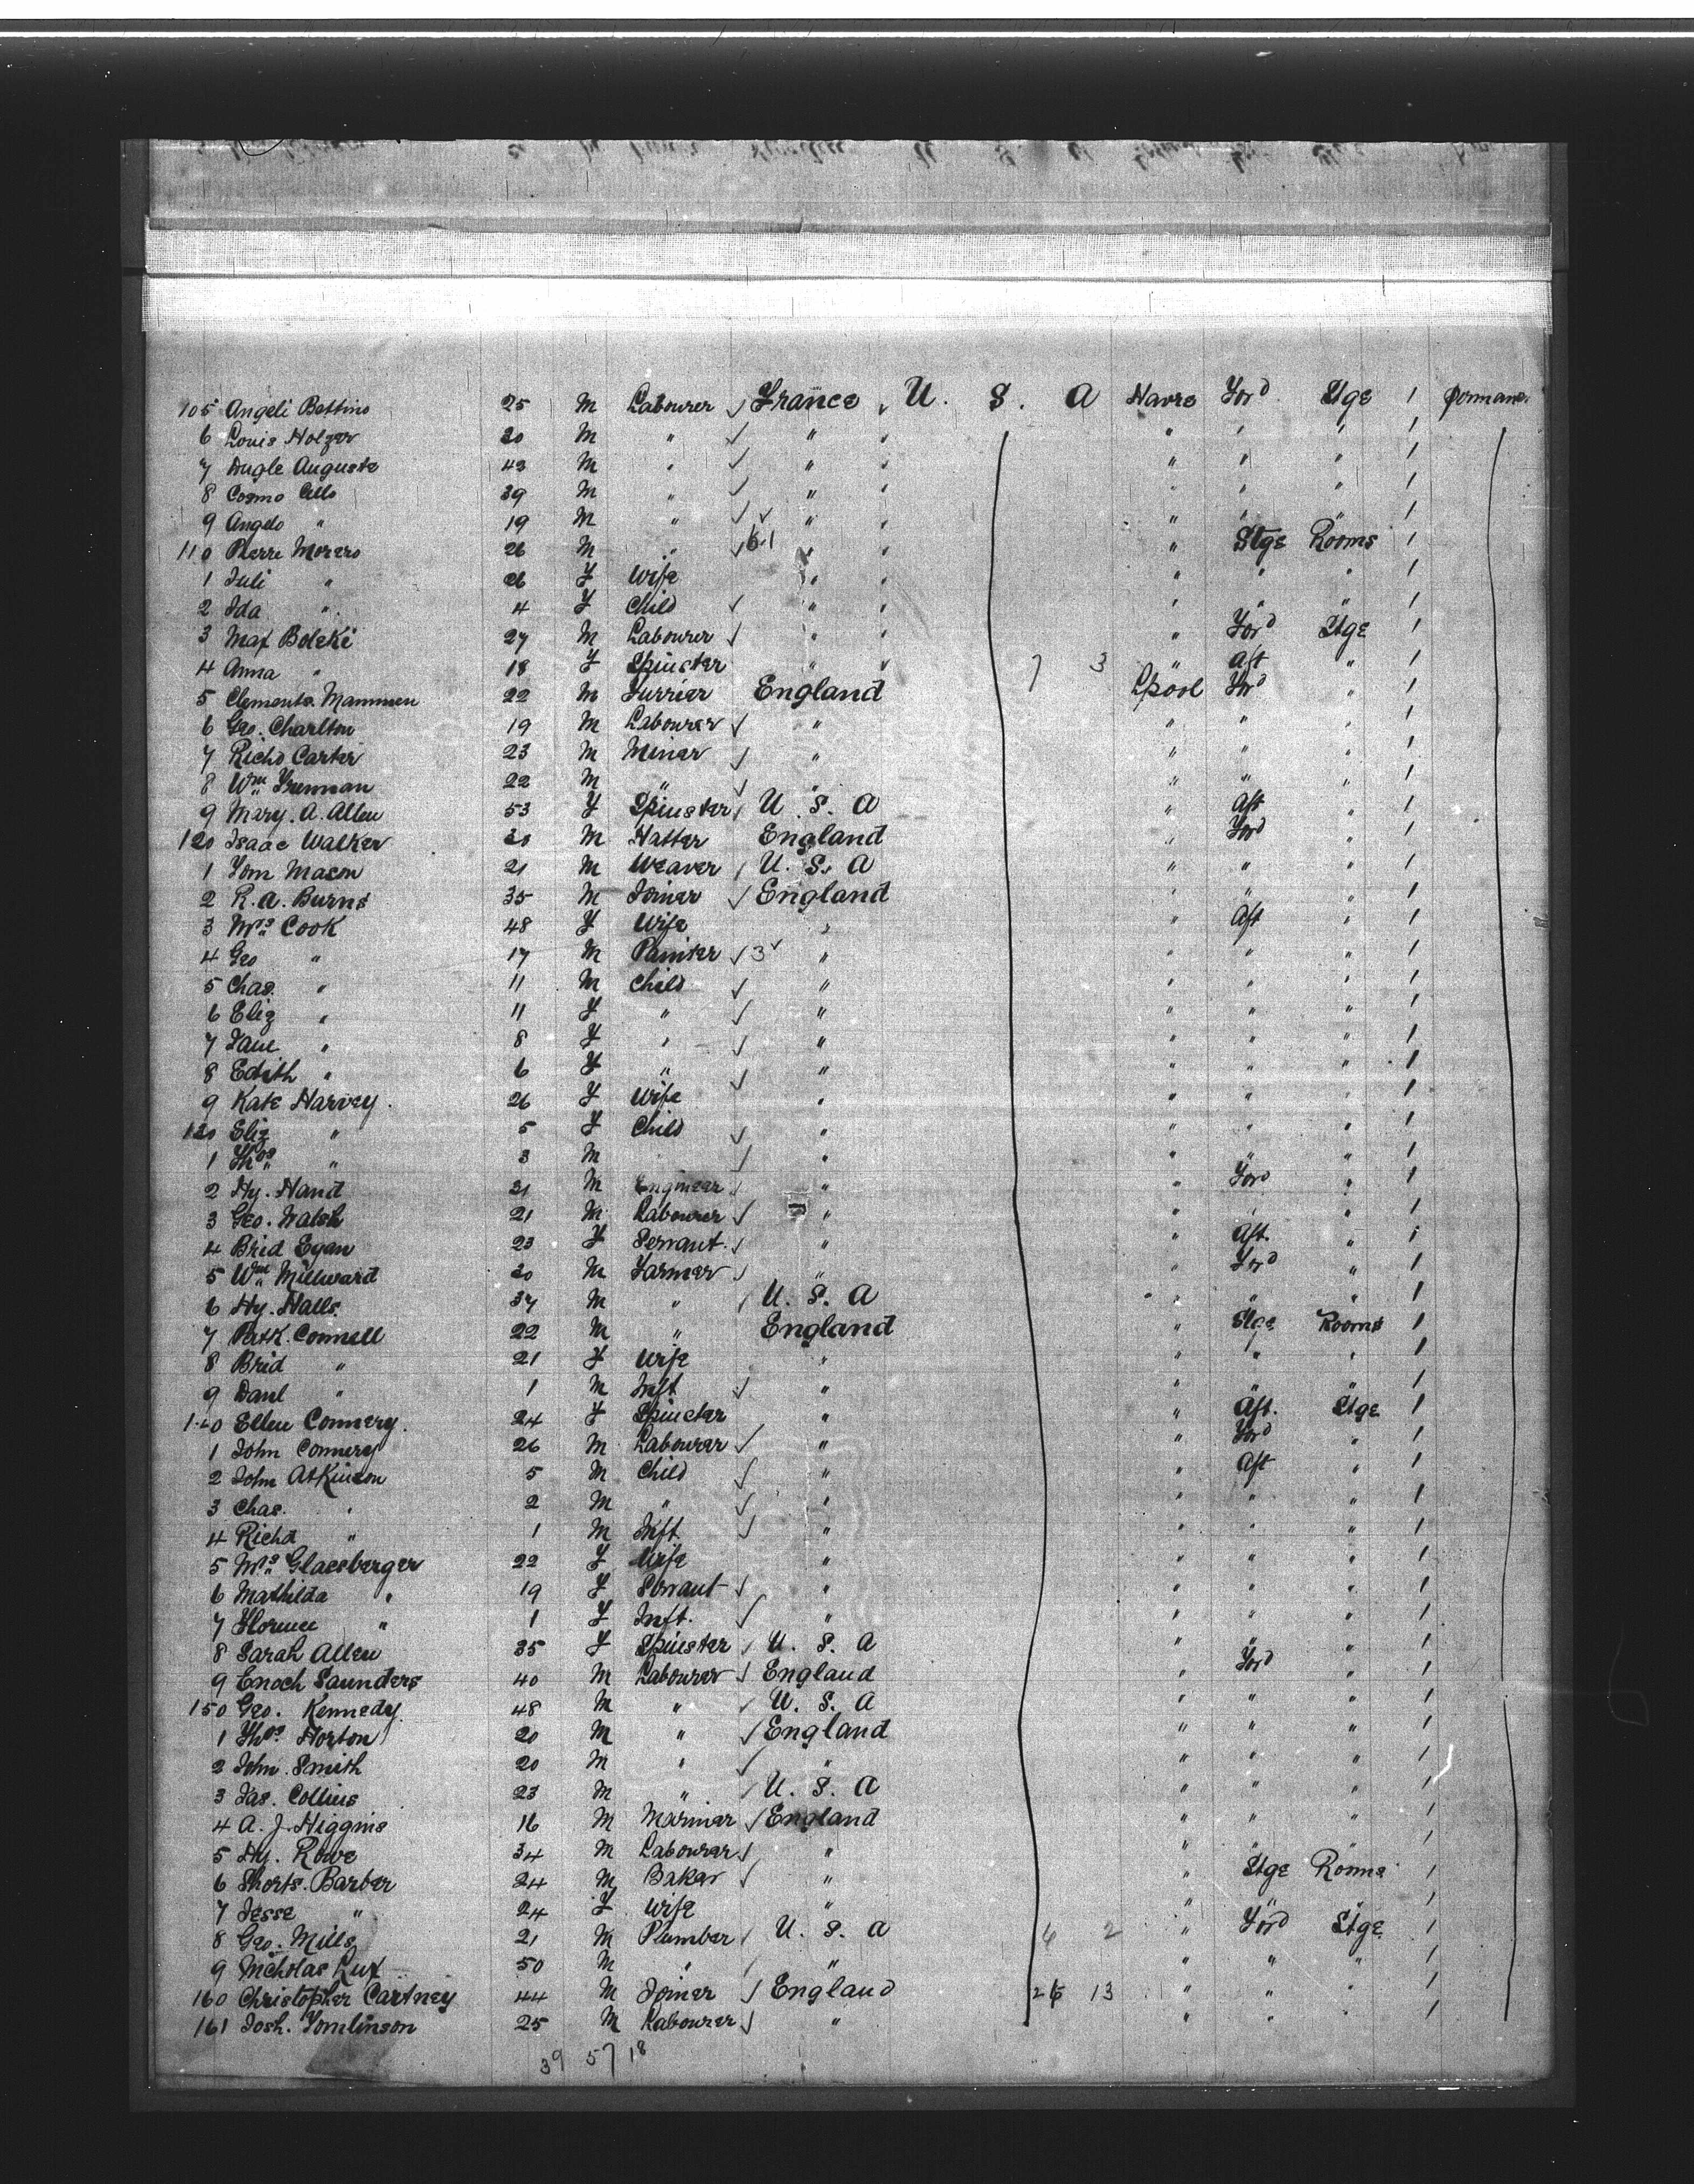 105 Angeli Bettino 25 M Labourer ✓ France U. S. A Havre Ford Stge 1
6 Louis Holzer 30 M " ✓ " " " " " 1
7 Augusta 43 M " ✓ " " " " " 1
8 Cosmo Cello 39 M " ✓ " " " " " 1
9 Angelo " 19 M " ✓ ✓ " " " " " 1
110 Pierre Morero 26 M " ✓ 6.1 " " " Stge Rooms 1
1 Juli " 26 F Wife " " " " " 1
2 Ida " 4 F Child ✓ " " " " " 1
3 Max Boleki 27 M Labourer ✓ " " " Ford Stge 1
4 Anna " 18 F Spinster " " 7 3 " Aft " 1
5 Clements Mammen 22 M Furrier England Lpool Ford " 1
6 Geo. Charlton 19 M Labourer ✓ " " " " 1
7 Richd Carter 23 M Miner ✓ " " " " 1
8 Wm 22 M " ✓ " " " " 1
9 Mary. A. Allen 53 F Spinster ✓ U. S. A " Aft " 1
120 Isaac Walker 30 M Hatter England " Ford " 1
1 Tom Mason 21 M Weaver ✓ U. S. A " " " 1
2 R. A. Burns 35 M Joiner ✓ England " " " 1
3 Mrs Cook 48 F Wife " " Aft " 1
4 Geo " 17 M Painter ✓ 3 ✓ " " " " 1
5 Chas. " 11 M Child ✓ " " " " 1
6 Eliz " 11 F " ✓ " " " " 1
7 Jane " 8 F " ✓ " " " " 1
8 Edith " 6 F " ✓ " " " " 1
9 Kate Harvey. 26 F Wife " " " " 1
130 Eliz " 5 F Child ✓ " " " " 1
1 Thos " 3 M ✓ " " " " 1
2 Hy. Hand 31 M Engineer ✓ " " Ford " 1
3 Geo. Walsh 21 M Labourer ✓ " " " " 1
4 Brid Egan 23 F Servant. ✓ " " Aft. " 1
5 Wm Millward 30 M Farmer ✓ " " Ford " 1
6 Hy. Halls 37 M " ✓ U. S. A " " " 1
7 Patk. Connell 22 M " England " Stge Rooms 1
8 Brid " 21 F Wife " " " " 1
9 Danl " 1 M Inft ✓ " " " " 1
140 Ellen Connery. 24 F Spinster " " Aft. Stge 1
1 John Connery 26 M Labourer ✓ " " Ford " 1
2 John Atkinson 5 M Child ✓ " " Aft " 1
3 Chas. " 2 M " ✓ " " " " 1
4 Richd " 1 M Inft. ✓ " " " " 1
5 Mrs Glaesberger 22 F Wife " " " " 1
6 Mathilda " 19 F Servant ✓ " " " " 1
7 Florence " 1 F Inft. ✓ " " " " 1
8 Sarah Allen 35 F Spinster ✓ U. S. A " " " 1
9 Enoch Saunders 40 M Labourer ✓ England " Ford " 1
150 Geo. Kennedy. 48 M " ✓ U. S. A " " " 1
1 Thos. Horton 20 M " ✓ England " " " 1
2 John. Smith 20 M " ✓ " " " " 1
3 Jas. Collins 23 M " ✓ U. S. A " " " 1
4 A. J. Higgins 16 M Mariner ✓ England " " " 1
5 Hy. Rowe 34 M Labourer ✓ " " " " 1
6 Barber 24 M Baker ✓ " " Stge Rooms 1
7 Jesse " 24 F Wife " " " " 1
8 Geo. Mills 21 M Plumber ✓ U. S. A 6 2 " Ford Stge 1
9 Nicholas Lux 50 M " ✓ " " " " 1
160 Christopher Cartney 44 M Joiner ✓ England 13 " " " 1
161 Josh. Tomlinson 25 M Labourer ✓ " " " 1
39 57 18